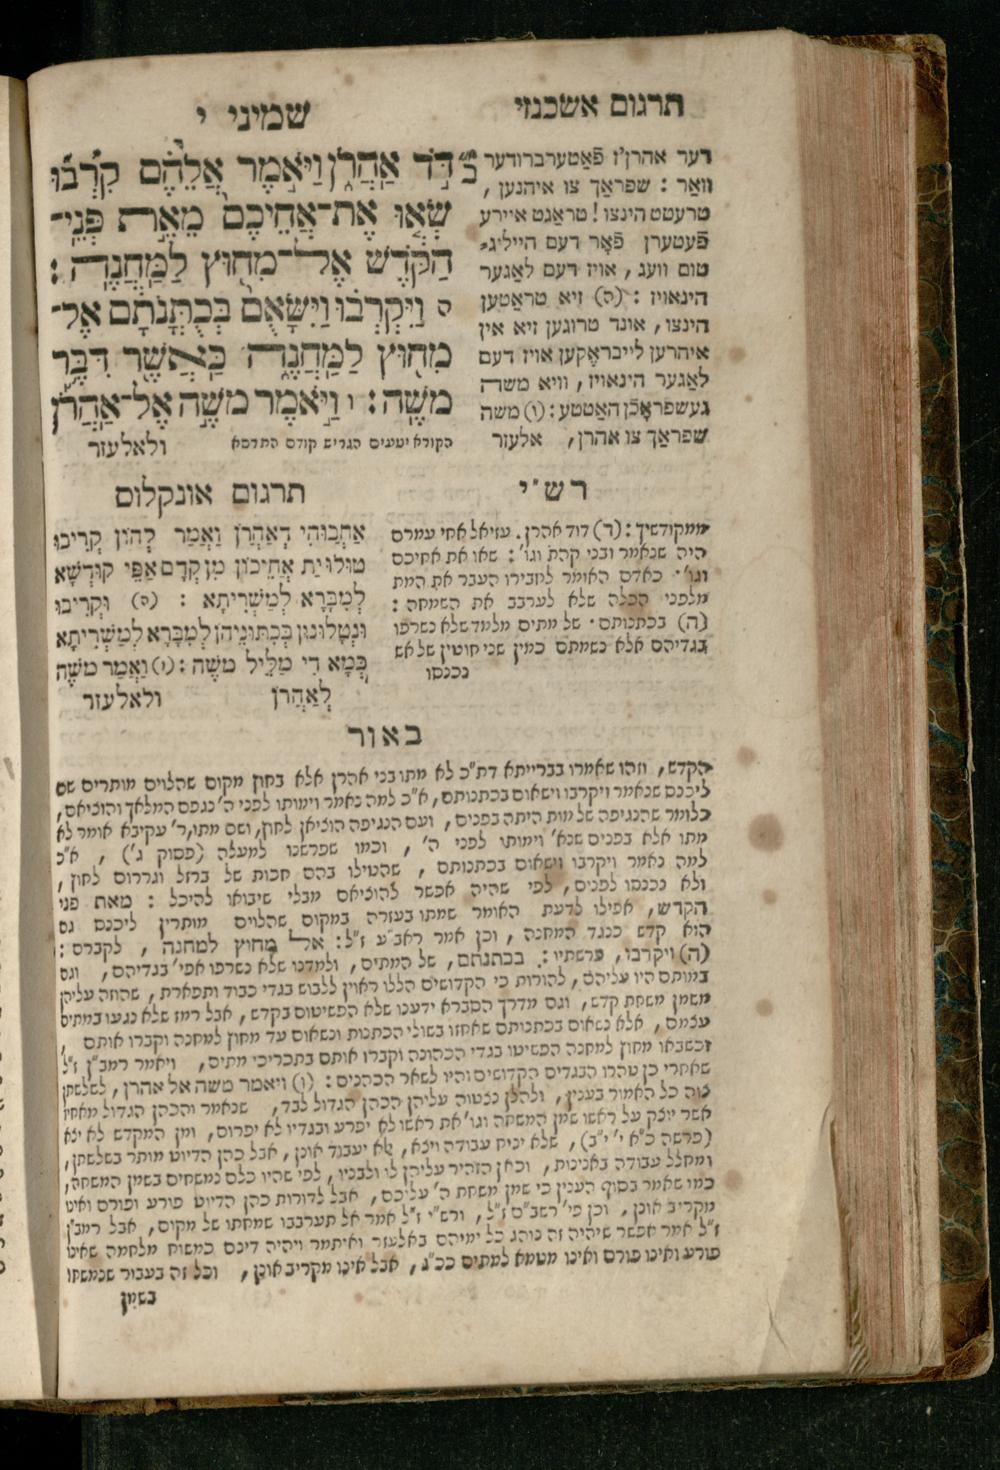 תרגום אשכנזי
שמיני י
דער אהרן'ז פֿאַטערברודער
וואַר : שפראַך צו איהנען ,
טרעטט הינצו ! טראַגט איירע
פֿעטערן פֿאָר דעם הייליג-
טום וועג , אויז דעם לאַגער
הינאויז : (ה) זיא טראַטען
הינצו , אונד טרוגען זיא אין
איהרען לייבראָקען אויז דעם
לאַגער הינאויז , וויא משה
געשפראָכֿן האַטטע : (ו) משה
שפראַך צו אהרן , אלעזר
דֹּ֣ד אַֽהֲרֹ֑ן וַיֹּ֣אמֶר אֲלֵהֶ֗ם קִ֠רְב֞וּ
שְׂא֤וּ אֶת־אֲחֵיכֶם֙ מֵאֵ֣ת פְּנֵֽי־
הַקֹּ֔דֶשׁ אֶל־מִח֖וּץ לַֽמַּחֲנֶֽה :
ה וַֽיִּקְרְב֗וּ וַיִּשָּׂאֻם֙ בְּכֻתֳּנֹתָ֔ם אֶל־
מִח֖וּץ לַֽמַּחֲנֶ֑ה כַּֽאֲשֶׁ֖ר דִּבֶּ֥ר
מֹשֶֽׁה : ו וַיֹּ֣אמֶר מֹשֶׁ֣ה אֶֽל־אַהֲרֹ֡ן
הקורא יטעים הגריש קודם התרסא
ולאלעזר
רש"י
ממקודשיך : (ד) דוד אהרן . עזיאל אחי עמרם
היה שנאמר ובני קהת וגו' : שאו את אחיכם
וגו' . כאדם האומר לחבירו העבר את המת
מלפני הכלה שלא לערבב את השמחה :
(ה) בכתנותם . של מתים מלמד שלא נשרפו
בגדיהם אלא נשמתם כמין שני חוטין של אש
נכנסו
תרגום אונקלוס
אַחְבוּהִי דְאַהֲרֹן וַאֲמַר לְהוֹן קְרִיבוּ
טוּלוּ יַת אֲחֵיכוֹן מִן קֳדָם אַפֵּי קוּדְשָׁא
לְמִבָּרָא לְמַשְׁרִיתָא : (ה) וּקְרִיבוּ
וּנְטָלוּנוּן בְּכִתּוּנֵיהוֹן לְמִבָּרָא לְמַשְׁרִיתָא
כְּמָא דִי מַלִּיל משֶׁה : (ו) וַאֲמַר משֶׁה
לְאַהֲרֹן
ולאלעזר
באור
הקדש , וזהו שאמרו בברייתא דת"כ לא מתו בני אהרן אלא בחוץ מקום שהלוים מותרים שם
ליכנס שנאמר ויקרבו וישאום בכתנותם , א"כ למה נאמר וימותו לפני ה' נגפם המלאך והוציאם ,
כלומר שהנגיפה של מות היתה בפנים , ועם הנגיפה הוציאן לחוץ , ושם מתו , ר' עקיבא אומר לא
מתו אלא בפנים שנא' וימותו לפני ה' , וכמו שפרשנו למעלה (פסוק ג') , א"כ
למה נאמר ויקרבו וישאום בכתנותם , שהטילו בהם חכות של ברזל וגררום לחוץ ,
ולא נכנסו לפנים , לפי שהיה אפשר להוציאם מבלי שיבואו להיכל : מאת פני
הקדש , אפילו לדעת האומר שמתו בעזרה במקום שהלוים מותרין ליכנס גם
הוא קדש כנגד המחנה , וכן אמר ראב"ע ז"ל : אל מחוץ למחנה , לקברם :
(ה) ויקרבו , פרשתיו : בכתנתם , של המתים , ולמדנו שלא נשרפו אפי' בגדיהם , וגם
במותם היו עליהם , להורות כי הקדושים הללו ראוין ללבוש בגדי כבוד ותפארת , שהוזה עליהן
משמן משחת קדש , וגם מדרך הסברא ידענו שלא הפשיטום בקדש , אבל רמז שלא נגעו במתים
עצמם , אלא נשאום בכתנותם שאחזו בשולי הכתנות ונשאום עד מחוץ למחנה וקברו אותם ,
וכשבאו מחוץ למחנה הפשיטו בגדי הכהונה וקברו אותם בתכריכי מתים , ויאמר רמב"ן ז"ל
שאחרי כן טהרו הבגדים הקדושים והיו לשאר הכהנים : (ו) ויאמר משה אל אהרן , לשלשתן
צוה כל האמור בענין , ולהלן נצטוה עליהן הכהן הגדול לבד , שנאמר והכהן הגדול מאחיו
אשר יוצק על ראשו שמן המשחה וגו' את ראשו לא יפרע ובגדיו לא יפרום , ומן המקדש לא יצא
(פרשה כ"א י' י"ב) , שלא יניח עבודה ויצא , לא יעבוד אונן , אבל כהן הדיוט מותר בשלשתן ,
ומחלל עבודה באנינות , וכאן הזהיר עליהן לו ולבניו , לפי שהיו כלם נמשחים בשמן המשחה ,
כמו שאמר בסוף הענין כי שמן משחת ה' עליכם , אבל לדורות כהן הדיוט פורע ופורם ואינו
מקריב אונן , וכן פי' רשב"ם ז"ל , ורש"י ז"ל אמר אל תערבבו שמחתו של מקום , אבל רמב"ן
ז"ל אמר אפשר שיהיה זה נוהג כל ימיהם באלעזר ואיתמר ויהיה דינם כמשוח מלחמה שאינו
פורע ואינו פורם ואינו מטמא למתים ככ"ג , אבל אינו מקריב אונן , וכל זה בעבור שנמשחו
בשמן